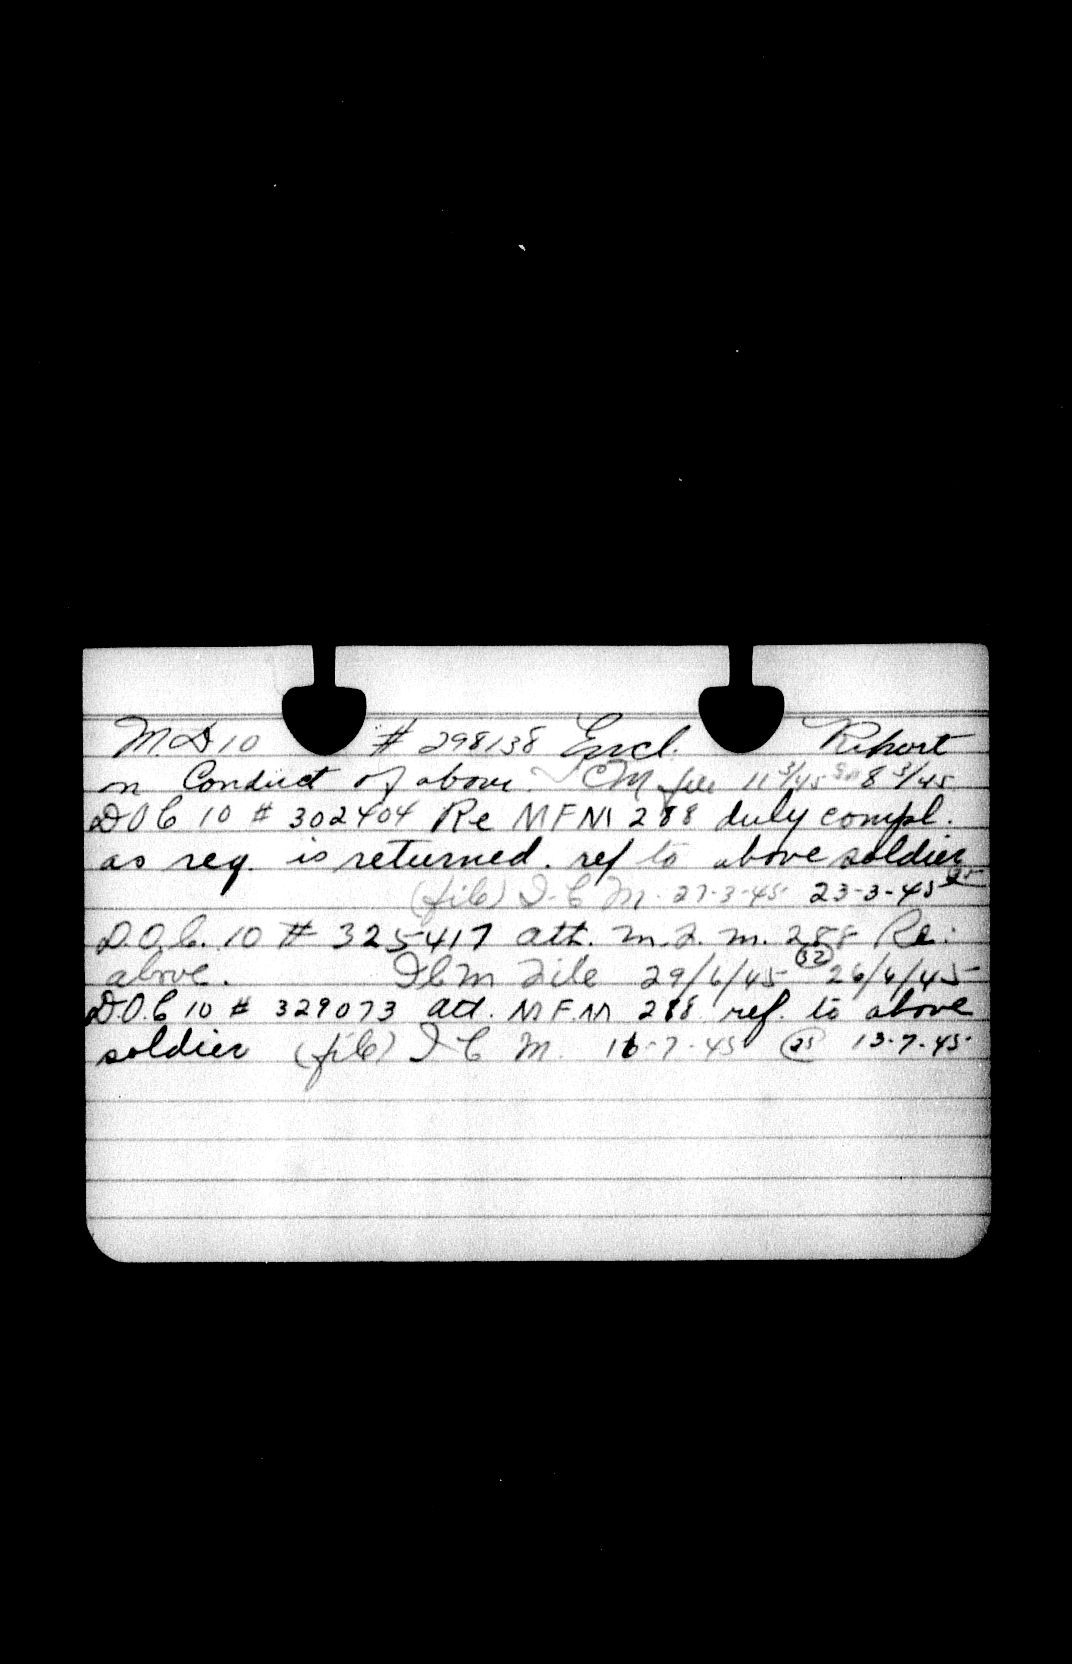 M.D 10 # 298138 Encl. Report
on Conduct of above. ICM file 11 3/45 8 3/45
D O C 10 # 302404 Re MFM 288 duly compl.
as req. is returned. ref to above soldier
(file) I-C M. 27-3-45 23-3-45
D.O.C. 10 # 325417 att. M.F.M. 288 Re:
above. ICM File 29/6/45 (32) 26/6/45
D.O.C 10 # 329073 att. MFM 288 ref. to above
soldier (file) I C M. 16-7-45 (25) 13-7-45